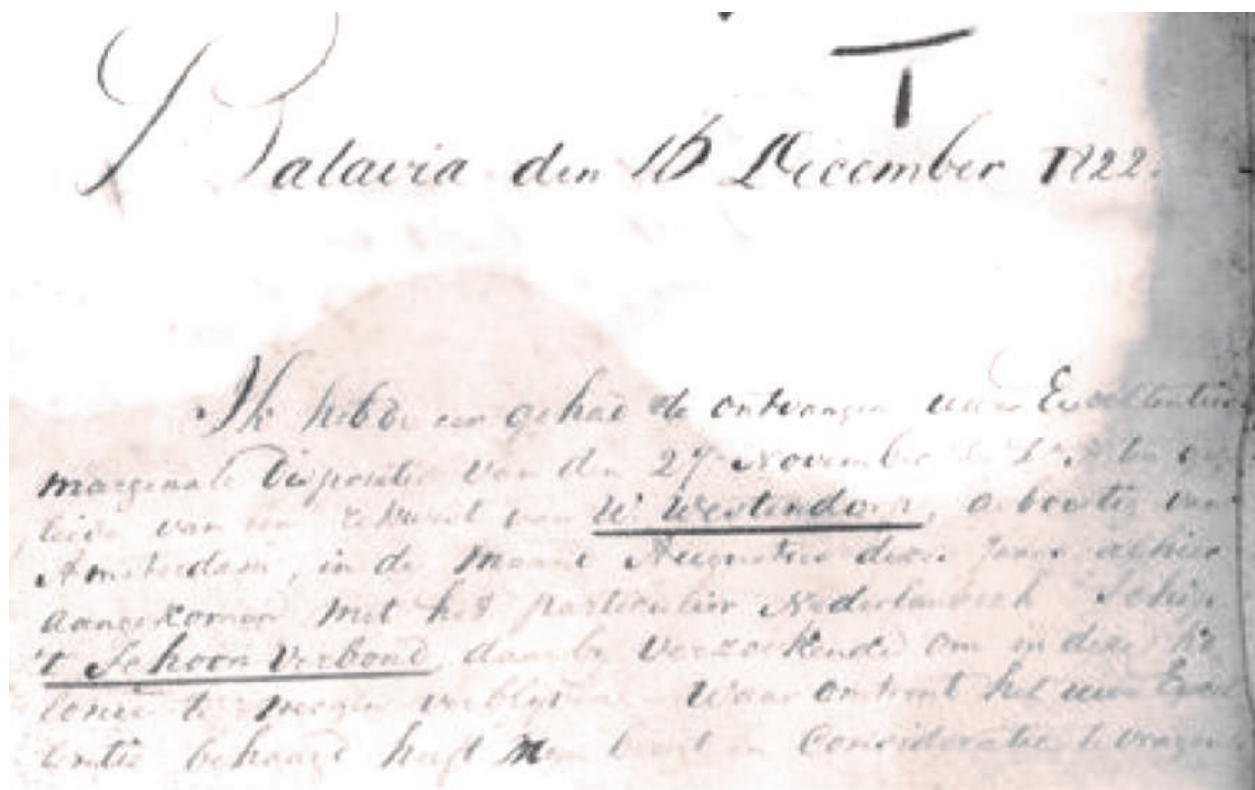 Batavia den 16 December 1822.
Ik hebbe eer gehad te ontvangen uwer Excellenties
marginale Dispositie van den 27 November
van een rekwest van W Westendorp, geboortig van
Amsterdam, in de maand Augustus dezes Jaars alhier
aangekomen met het particulier Nederlandsch Schip
't Schoon Verbond, daarbij verzoekende om in deze Ko
lonie te mogen verblijven Waar omtrent het uwer Excel
lentie behaagd heeft in Consideratie te vragen